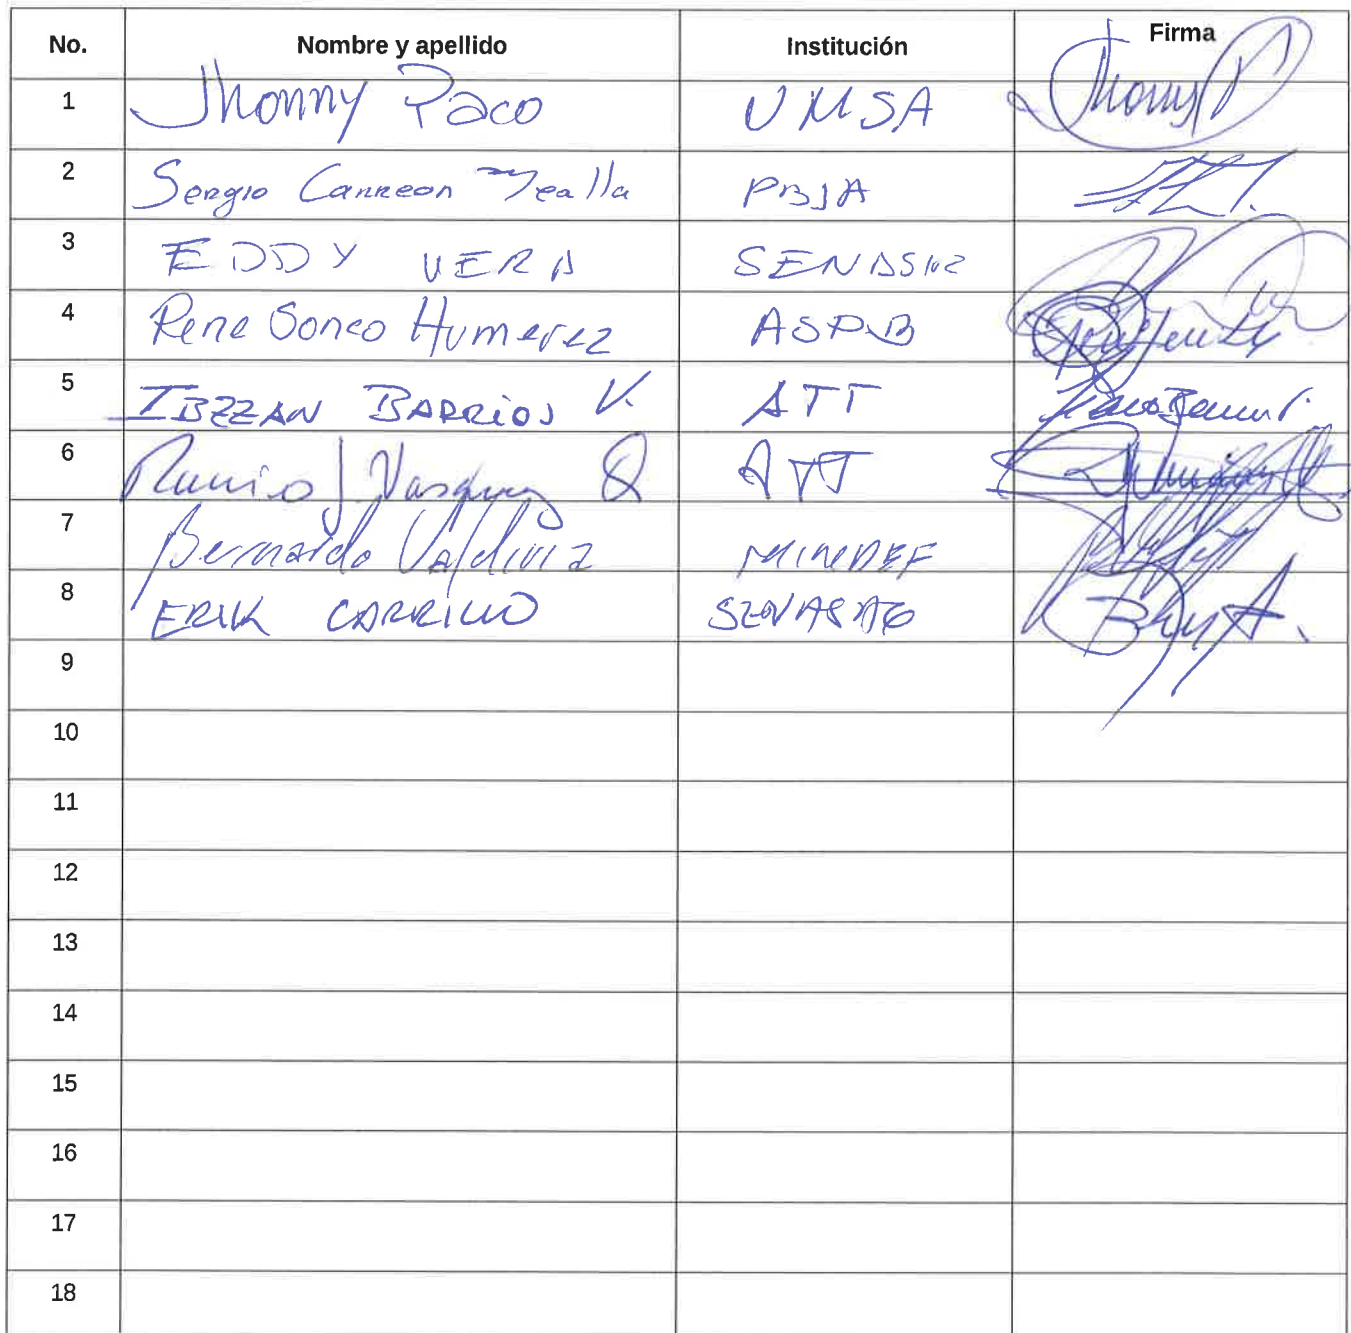 No. Nombre y apellido Institución Firma
1 Jhonny Paco UMSA Jhonny P
2 Sergio Carreon Mealla
3 EDDY VERA
4 Rene Gonso Humerez ASPB
5 IBZZAN BARRIOS V. ATT
6 Ramiro J. Vasquez Q ATT
7 Bernardo Valdivia MINDEF
8 ERIK CARRILLO SENASAG
9
10
11
12
13
14
15
16
17
18